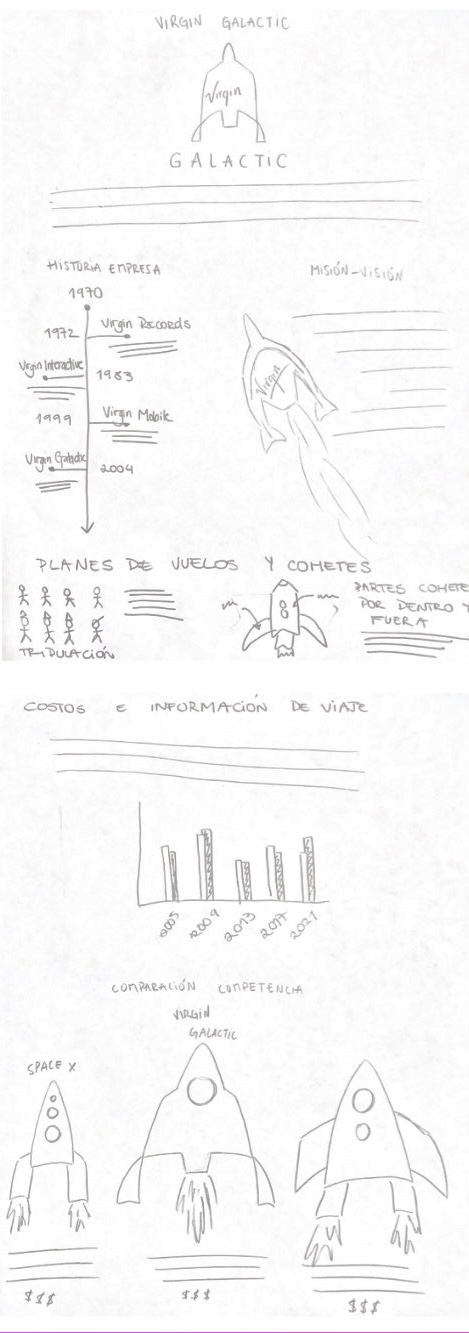 VIRGIN GALACTIC
Virgin
GALACTIC
HISTORIA EMPRESA
1970
1972
Virgin Records
Virgin Interactive
1983
1999
Virgin Mobile
Virgin Galactic
2004
MISIÓN-VISIÓN
Virgin
PLANES DE VUELOS Y COHETES
TRIPULACIÓN
PARTES COHETE
POR DENTRO Y
FUERA
COSTOS E INFORMACIÓN DE VIAJE
2005
2009
2013
2017
2021
COMPARACIÓN COMPETENCIA
SPACE X
VIRGIN
GALACTIC
$$$
$$$
$$$